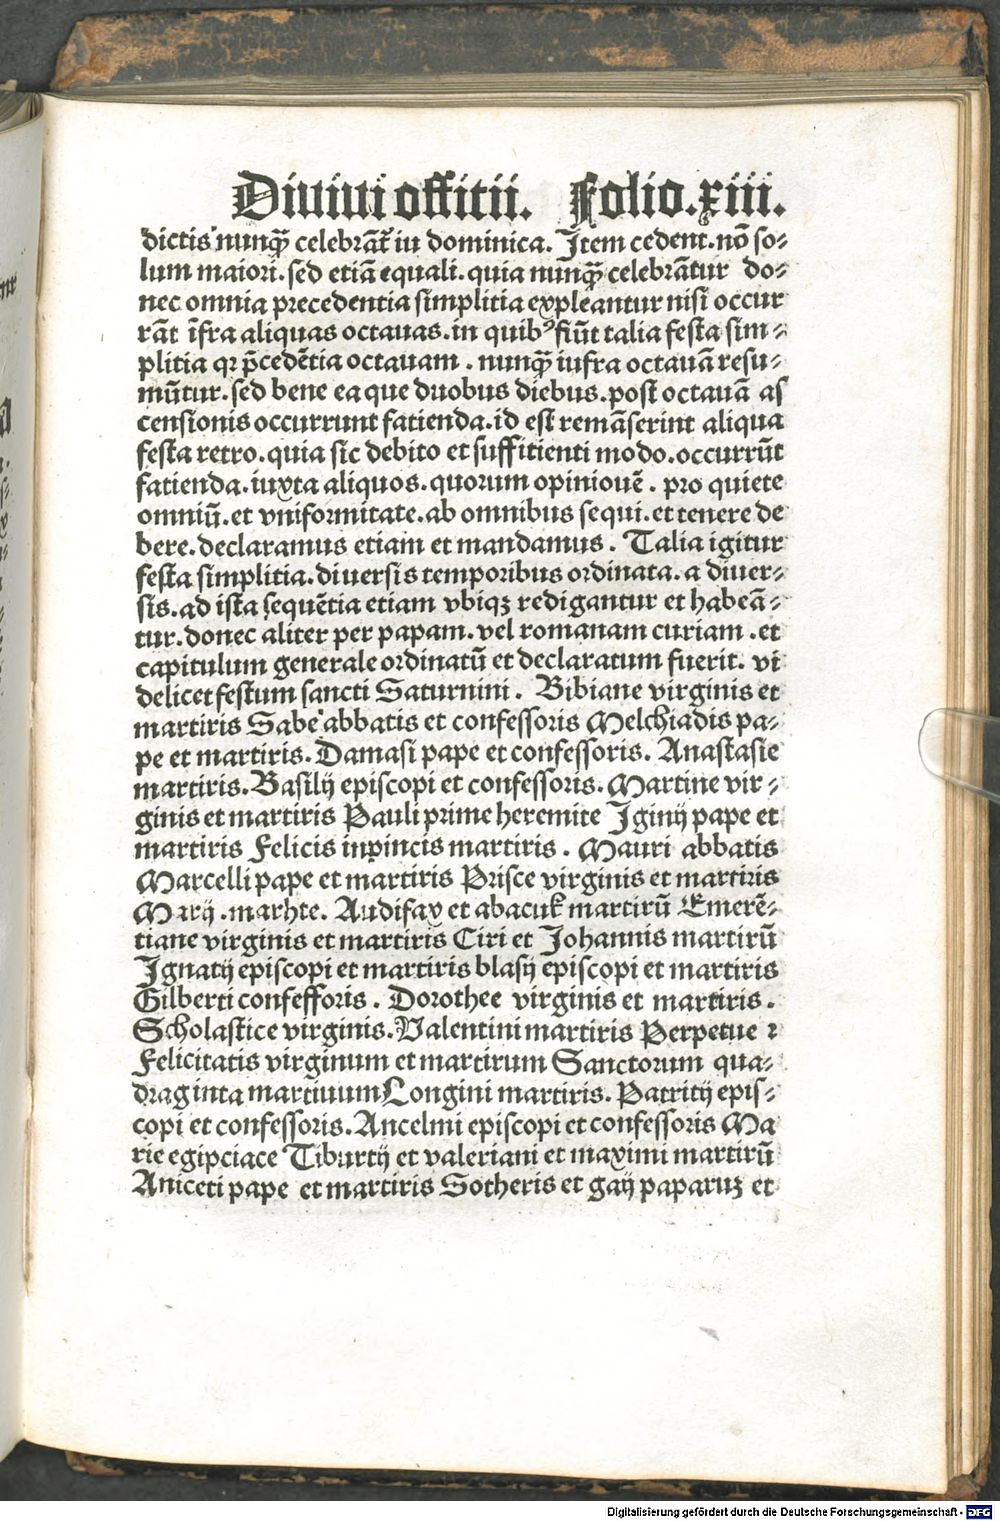 Diuiui offitii. Folio.xiii.
dictis nunqꝫ celebrāt̄ iu dominica. Item cedent.nō so⸗
lum maiori.sed etiā equali.quia nunqꝫ celebrantur do⸗
nec omnia precedentia simplitia expleantur nisi occur
rāt īfra aliquas octauas.in quibꝰ fiūt talia festa sim⸗
plitia qꝛ p̄cedētia octauam . nunqꝫ iufra octauā resu⸗
mūtur.sed bene ea que duobus diebus.post octauā as
censionis occurrunt fatienda.id est remāserint aliqua
festa retro.quia sic debito et suffitienti modo.occurrūt
fatienda.iuxta aliquos.quorum opiniouē . pro quiete
omniū.et vniformitate.ab omnibus sequi.et tenere de
bere.declaramus etiam et mandamus. Talia igitur
festa simplitia.diuersis temporibus ordinata.a diuer⸗
sis.ad ista sequētia etiam vbiqꝫ redigantur et habeā⸗
tur.donec aliter per papam.vel romanam curiam .et
capitulum generale ordinatū et declaratum fuerit. vi
delicet festum sancti Saturnini. Bibiane virginis et
martiris Sabe abbatis et confessoris Melchiadis pa⸗
pe et martiris. Damasi pape et confessoris. Anastasie
martiris. Basilij episcopi et confessoris. Martine vir⸗
ginis et martiris Pauli prime heremite Iginij pape et
martiris Felicis inpincis martiris . Mauri abbatis
Marcelli pape et martiris Prisce virginis et martiris
Marij .marhte. Audifax et abacuk martirū Emerē⸗
tiane virginis et martiris Ciri et Johannis martirū
Ignatij episcopi et martiris blasij episcopi et martiris
Gilberti confefforis . Dorothee virginis et martiris.
Scholastice virginis. Valentini martiris Perpetue ꝛ
Felicitatis virginum et martirum Sanctorum qua⸗
draginta martiuum Longini martiris. Patritij epis⸗
copi et confessoris. Ancelmi episcopi et confessoris Ma
rie egipciace Tiburtij et valeriani et maximi martirū
Aniceti pape et martiris Sotheris et gaij paparuꝫ et
Digitalisierung gefördert durch die Deutsche Forschungsgemeinschaft - DFG